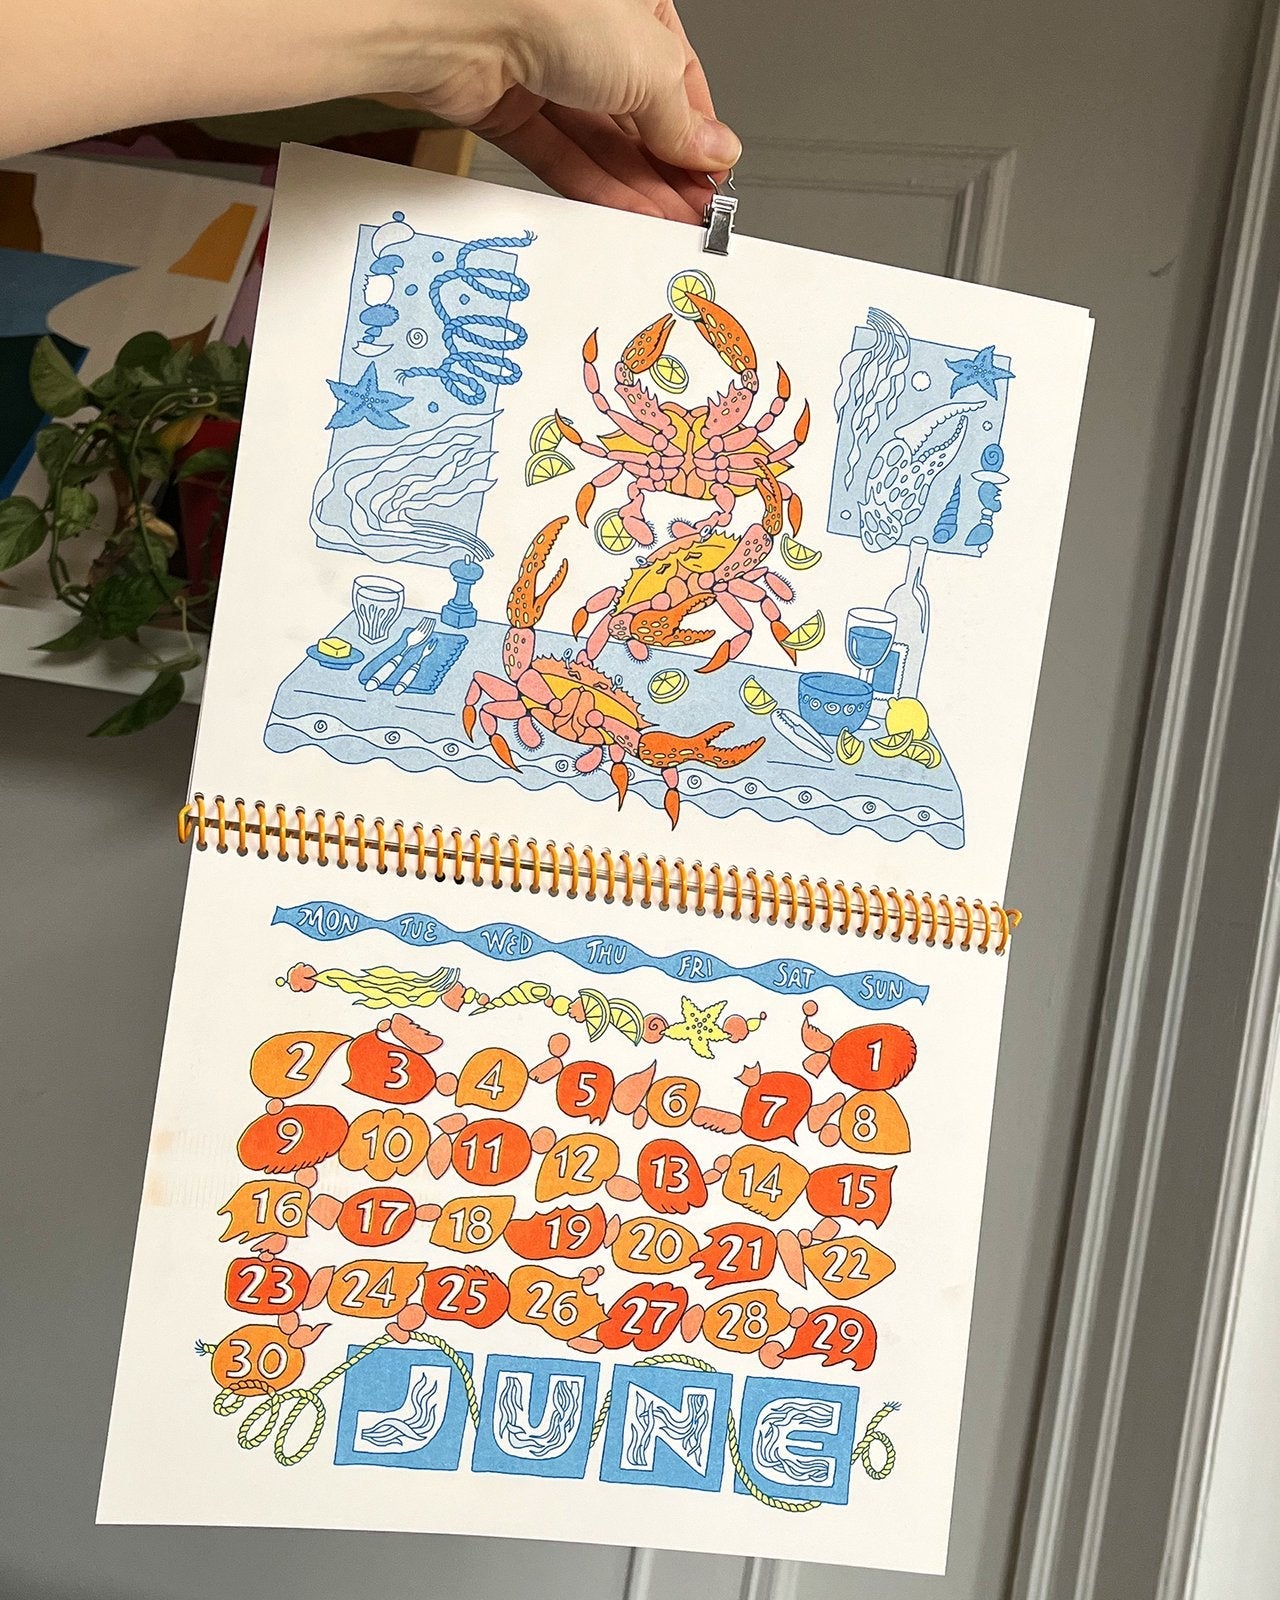 MON TUE WED THU FRI SAT SUN
1
2 3 4 5 6 7 8
9 10 11 12 13 14 15
16 17 18 19 20 21 22
23 24 25 26 27 28 29
30
JUNE